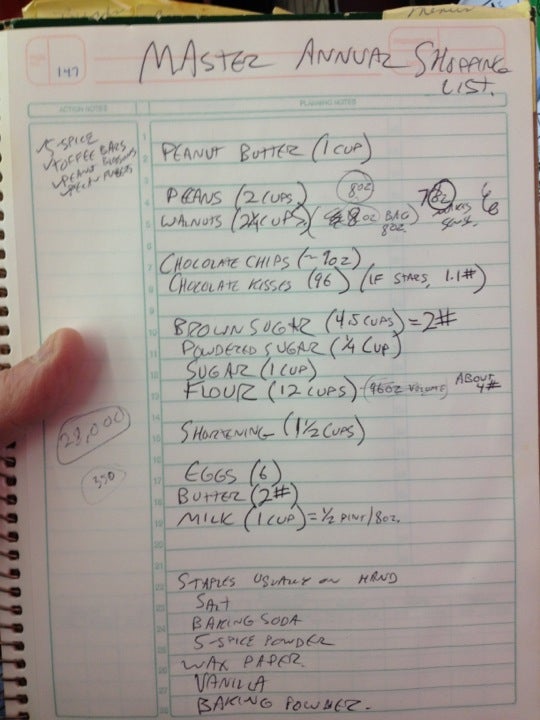 147
MASTER ANNUAL SHOPPING
LIST.
ACTION NOTES
PLANNING NOTES
5-SPICE
TOFFEE BARS
PEANUT BLOSSOMS
PECAN PUFFETS
PEANUT BUTTER (1 CUP)
PECANS (2 CUPS) 8oz
WALNUTS (2¼ CUPS) 8oz BAG
8oz.
CHOCOLATE CHIPS (~9oz)
CHOCOLATE KISSES (96) (IF STARS, 1.1#)
BROWN SUGAR (4.5 CUPS) = 2#
POWDERED SUGAR (¼ CUP)
SUGAR (1 CUP)
FLOUR (12 CUPS) 96oz VOLUME ABOUT
4#
SHORTENING (1½ CUPS)
28,000
350
EGGS (6)
BUTTER (2#)
MILK (1 CUP) = ½ PINT/8oz.
STAPLES USUALLY ON HAND
SALT
BAKING SODA
5-SPICE POWDER
WAX PAPER
VANILLA
BAKING POWDER.